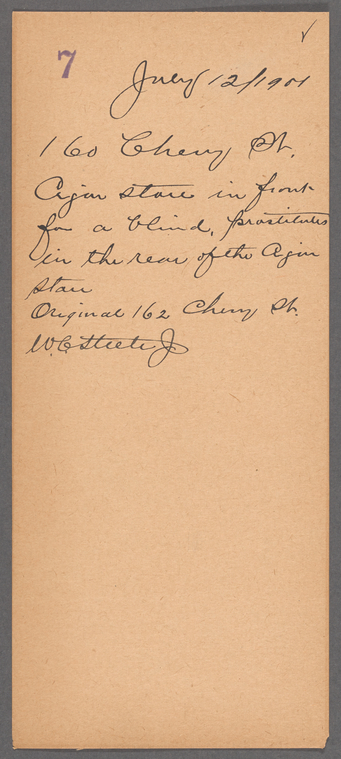 7
July 12/1901
160 Cherry St.
Cigar store in front
for a blind, prostitutes
in the rear of the Cigar
store
Original 162 Cherry St.
W.C. Steele Jr